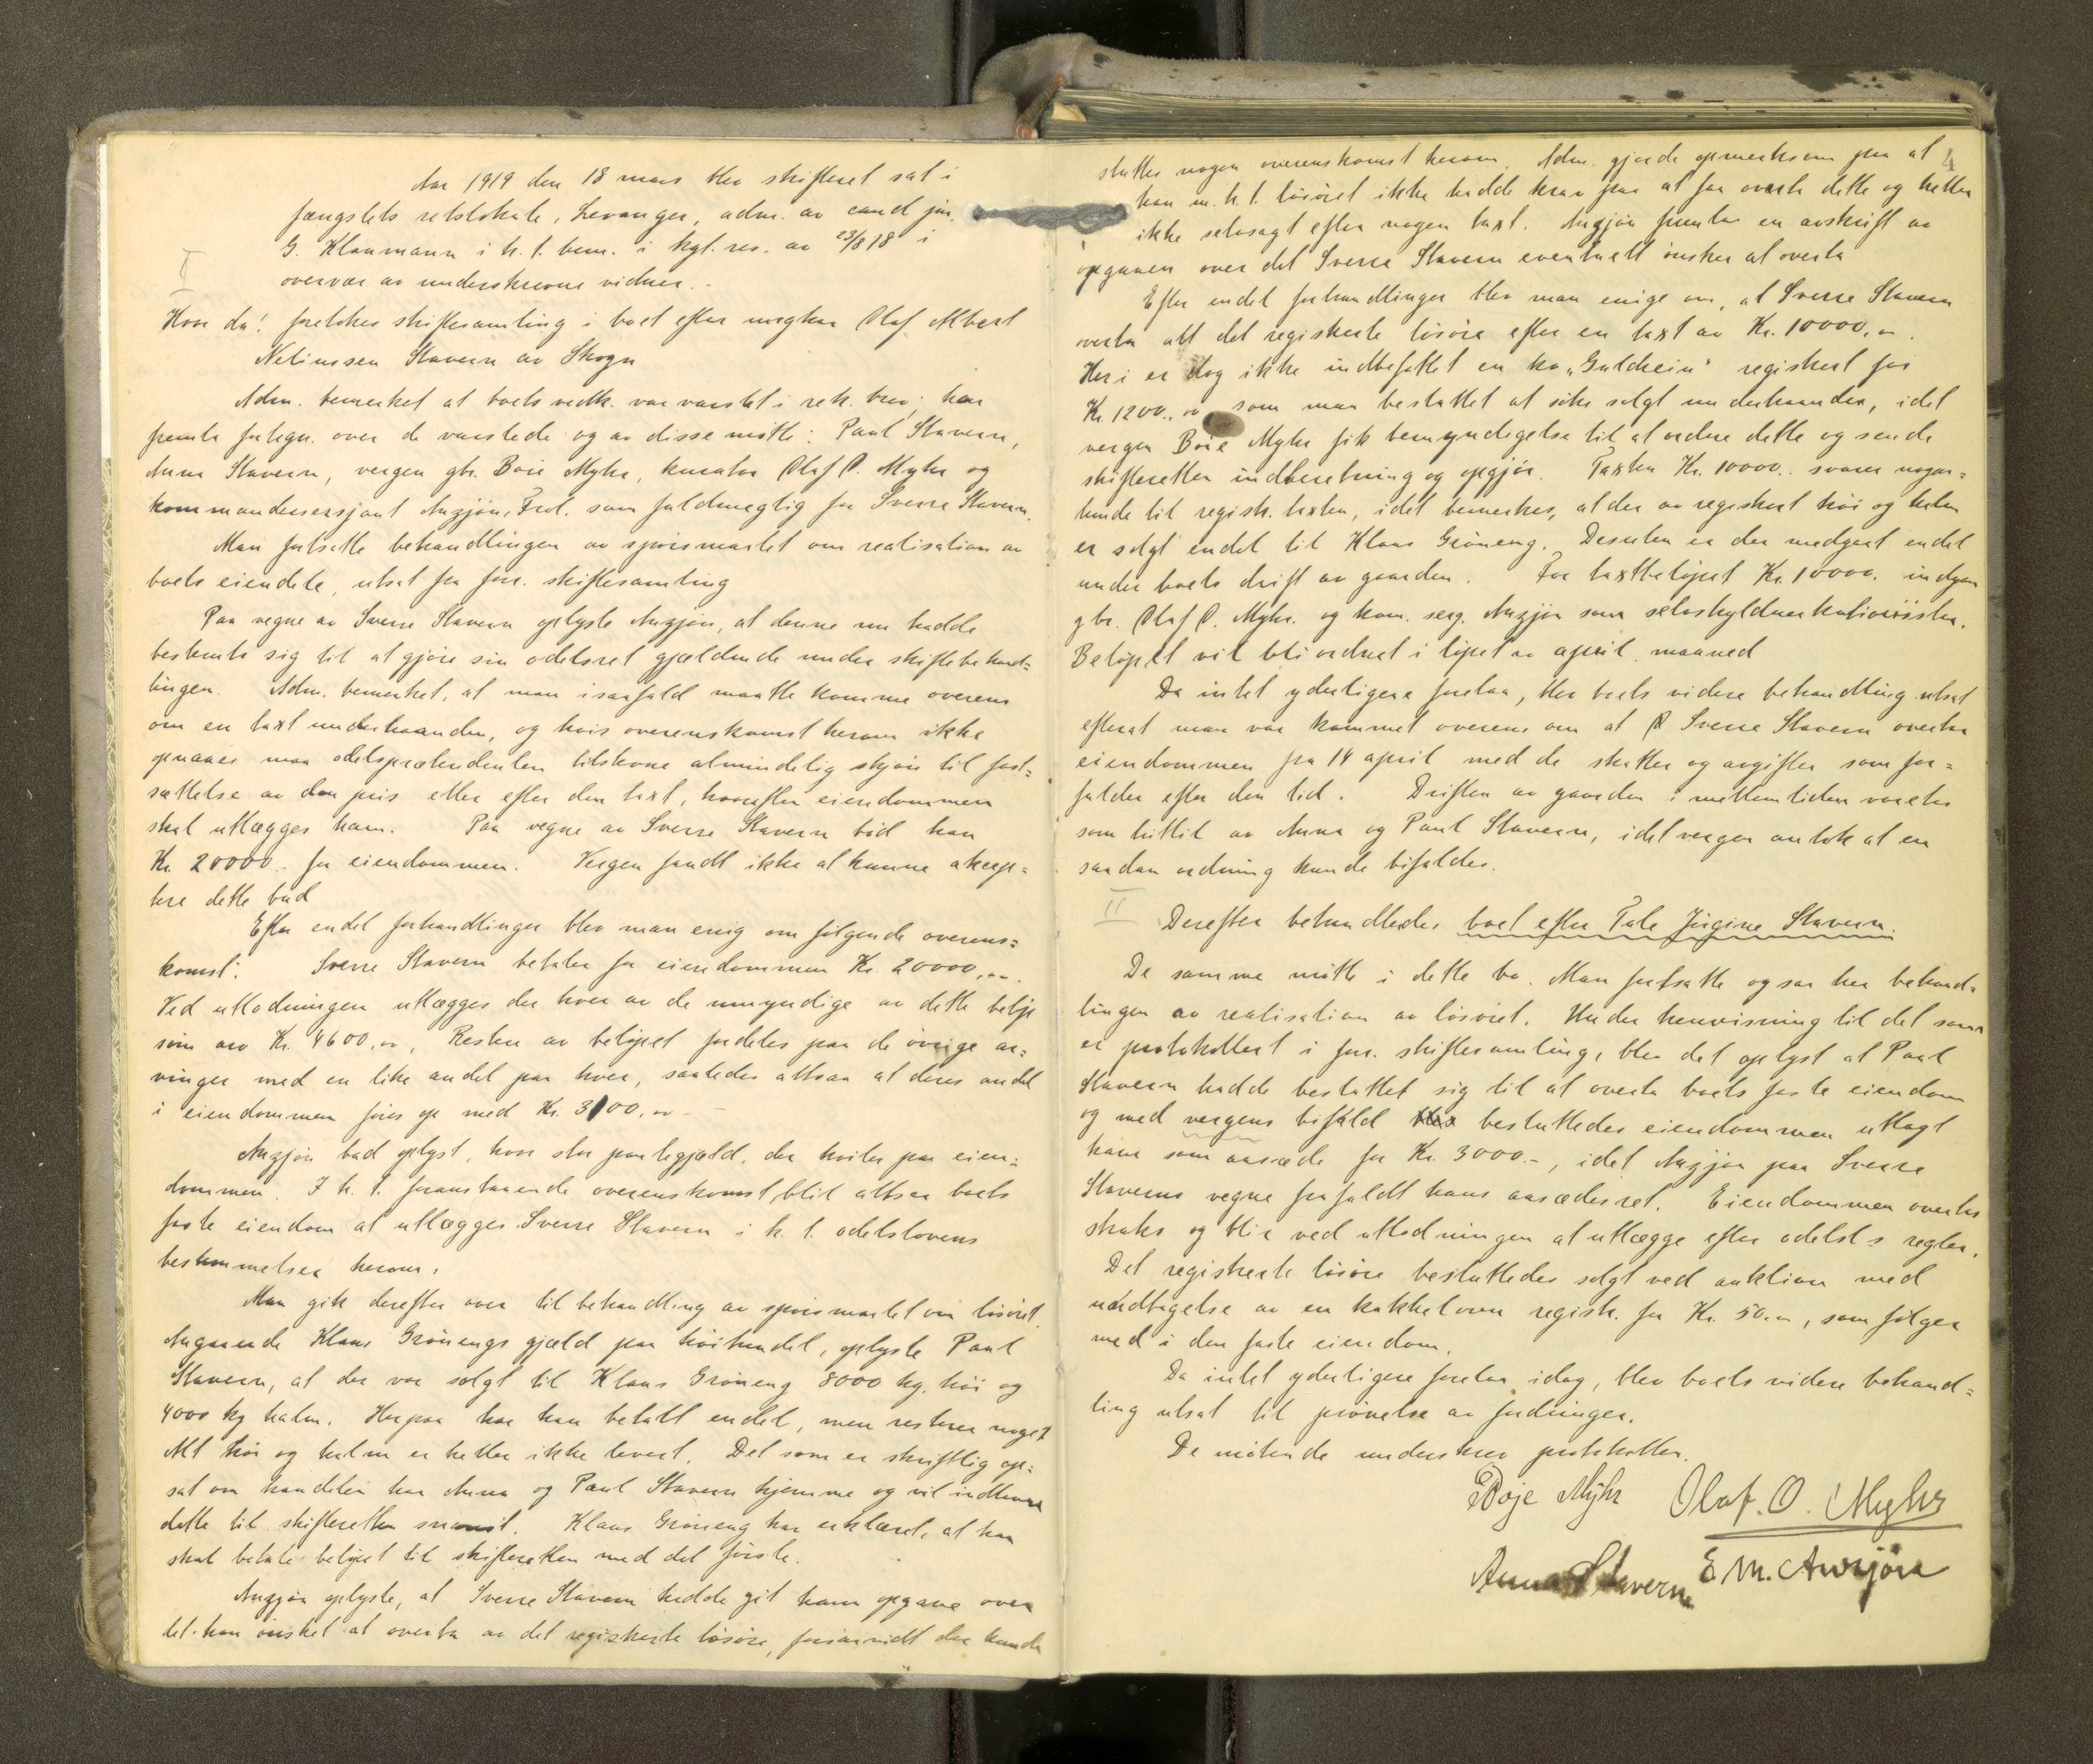 Aar 1919 den 18 mars blev skifteret sat i
fængslets retslokale, Levanger, adm. av cand jur.
G. Klaumann i h. t. bem. i kgl. res. av 23/8 18 i
I
overvær av underskrevne vidner. -
Hvor da! foretokes skiftesamling i boet efter ungkar Olaf Albert
Neliussen Stavern av Skogn
Adm. bemerket at boets vedk. var varslet i rek. brev; han
fremla fortegn. over de varslede og av disse møtte: Paul Stavern,
Anna Stavern, vergen gbr. Boie Myhr, kurator Olaf O. Myhr og
kommandersersjant Auzjøn, Frol. som fuldmægtig for Sverre Stavern.
Man fortsatte behandlingen av spørsmaalet om realisation av
boets eiendele, utsat fra forr. skiftesamling
Paa vegne av Sverre Stavern oplyste Auzjøn, at denne nu hadde
bestemt sig til at gjøre sin odelsret gjældende under skiftebehand=
lingen. Adm. bemerket, at man isaafald maatte komme overens
om en taxt underhaanden, og hvis overenskomst herom ikke
opnaaes maa odelsprætendenten tilstevne almindelig skjøn til fast=
sættelse av den pris eller efter den taxt, hvorefter eiendommen
skal utlægges ham. Paa vegne av Sverre Stavern bød han
Kr. 20000.- for eiendommen. Vergen fandt ikke at kunne aksep=
tere dette bud
Efter endel forhandlinger blev man enig om følgende overens=
komst: Sverre Stavern betaler for eiendommen Kr. 20000,oo.
Ved utlodningen utlægges der hver av de umyndige av dette beløp
som arv Kr. 4600,oo, Resten av beløpet fordeles paa de øvrige ar=
vinger med en like andel paa hver, saaledes altsaa at deres andel
i eiendommen føres op med Kr. 3100,oo -
Auzjøn bad oplyst, hvor stor pantegjæld, der hviler paa eien=
dommen. I h. t. foranstaaende overenskomst blir altsaa boets
faste eiendom at utlægges Sverre Stavern i h. t. odelslovens
bestemmelser herom.
Man gik derefter over til behandling av spørsmaalet om løsøret.
Angaaende Klaus Grønengs gjæld paa høihandel, oplyste Paul
Stavern, at der var solgt til Klaus Grøneng 8000 kg. høi og
4000 kg halm. Herpaa har han betalt endel, men resterer noget
Alt høi og halm er heller ikke levert. Det som er skriftlig op=
sat om handelen har Anna og Paul Stavern hjemme og vil indlevere
dette til skifteretten snarest. Klaus Grøneng har erklært, at han
skal betale beløpet til skifteretten med det første.
Auzjøn oplyste, at Sverre Stavern hadde git ham opgave over
det han ønsket at overta av det registrerte løsøre, forsaavidt der kunde
4
sluttes nogen overenskomst herom. Adm. gjorde opmerksom paa at
han m. h. t. løsøret ikke hadde krav paa at faa overta dette og heller
ikke selvsagt efter nogen taxt. Auzjøn fremla en avskrift av
opgaven over det Sverre Stavern eventuelt ønsker at overta
Efter endel forhandlinger blev man enige om, at Sverre Stavern
overta alt det registrerte løsøre efter en taxt av Kr. 10000,oo.
Heri er dog ikke indbefattet en ko „Guldrein" registrert for
Kr. 1200.oo som man besluttet at søke solgt underhaanden, idet
vergen Boie Myhr fik bemyndigelse til at ordne dette og sende
skifteretten indberetning og opgjør. Taxten Kr. 10000.. svarer nogen=
lunde til registr. taxten, idet bemerkes, at der av registrert høi og halm
er solgt endel til Klaus Grøneng. Desuten er der medgaat endel
under boets drift av gaarden. For taxtbeløpet Kr. 10000. indgaar
gbr. Olaf O. Myhr. og kom. serg. Auzjøn som selvskyldnerkautionister.
Beløpet vil bli ordnet i løpet av april maaned
Da intet yderligere forelaa, blev boets videre behandling utsat
efterat man var kommet overens om at Sverre Stavern overtar
eiendommen fra 14 april med de skatter og avgifter som for=
falder efter den tid. Driften av gaarden i mellemtiden varetas
som hittil av Anna og Paul Stavern, idet vergen antok at en
saadan ordning kunde bifaldes.
II Derefter behandledes boet efter Tale Jørgine Stavern.
De samme møtte i dette bo. Man fortsatte ogsaa her behand=
lingen av realisation av løsøret. Under henvisning til det som
er protokollert i forr. skiftesamling, blev det oplyst at Paul
Stavern hadde besluttet sig til at overta boets faste eiendom
og med vergens bifald blev besluttedes eiendommen utlagt
ham som aasæde for Kr. 3000.-, idet Auzjøn paa Sverre
Staverns vegne frafaldt hans aasædesret. Eiendommen overtas
straks og blir ved utlodningen at utlægge efter odelsl.s regler.
Det registrerte løsøre besluttedes solgt ved auktion med
undtagelse av en kakkelovn registr. for Kr. 50.oo, som følger
med i den faste eiendom.
Da intet yderligere forelaa idag, blev boets videre behand=
ling utsat til prøvelse av fordringer.
De møtende underskrev protokollen.
Boje Myhr Olaf. O. Myhr
Anna Stavern E. M. Auzjøn